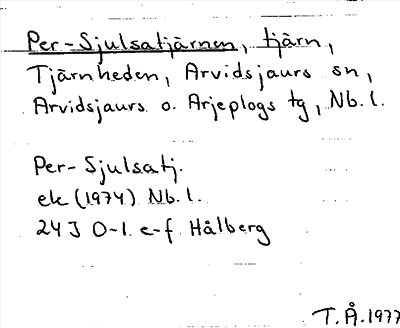 Per-Sjulsatjärnen, tjärn,
Tjärnheden, Arvidsjaurs sn,
Arvidsjaurs o. Arjeplogs tg, Nb.l.
Per-Sjulsatj.
ek (1974) Nb.l.
24J 0-1 e-f Hålberg
T.Å.1977